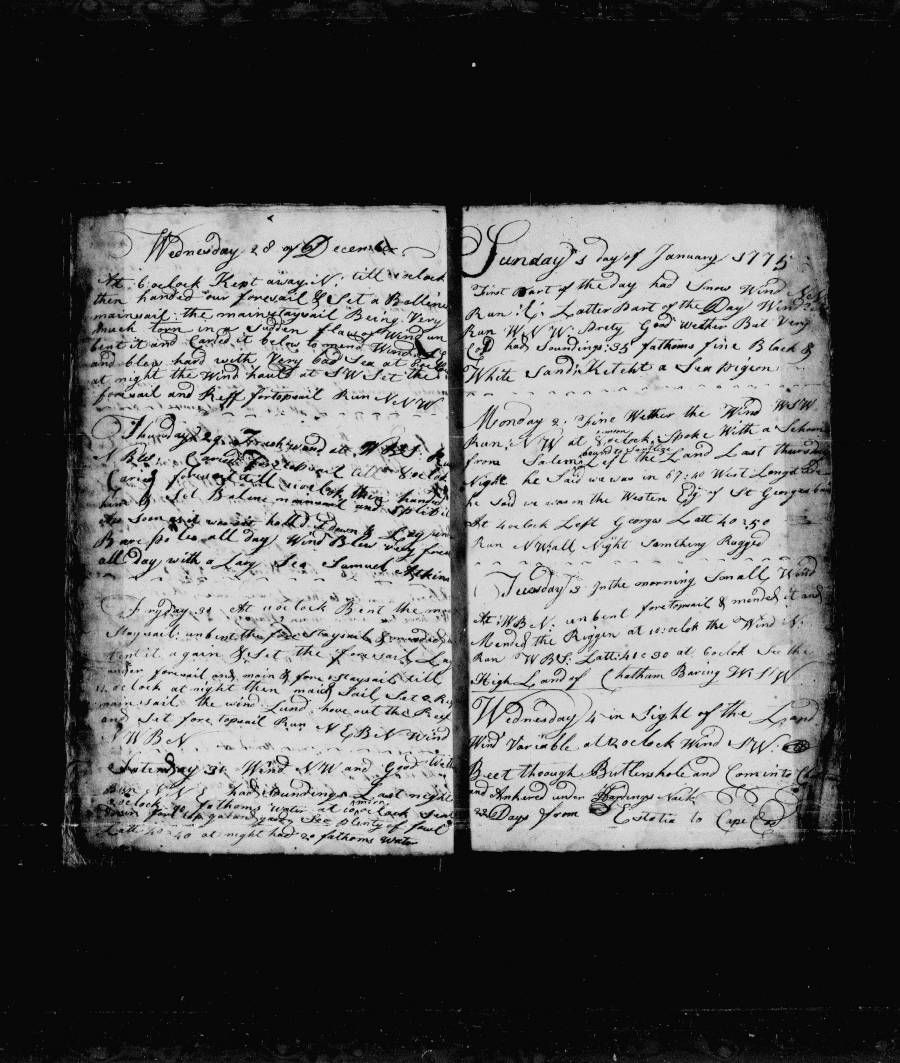 Wednesday 28 of December
At 6 oclock Kept away N. till oclock
then handed our foresail & Set a Ballene
mainsail: the mainstaysail Being Very
much torn in a Sudden flaw of Wind un
bent it and Caried it below to mend Wind
and blew hard with Very bad Sea at
at night the Wind hauld at SW Set the
foresail and Reff fortopsail Run N N W
Thursday 29 Fresh wind at
N B W Caried topsail till 8 oclok
Caried foresail till oclok then handed
him & Set Balene mainsail and Split it
As Soon as it was Set hall'd down & Lay un
Bare poles all day Wind Blew Very
all day with a Larg Sea Samuel Atkins
Fryday 30 At oclock Bent the
Staysail: unbent the fore Staysail & mended
bent it again & Set the foresail Lay
under foresail and main & fore Staysail till
oclock at night then main Sail Set
main sail the wind hove out the Reef
and Set fore topsail Run N & B N Wind
N W B N
Saterday 31 Wind N W and Good
Run N N E had Soundings Last night
oclock 40 fathoms Water at oclock
See plenty of fowl
Latt 40=40 at night had 20 fathoms Water
Sunday 1 day of January 1775
First Part of the day had Snow Wind
Run Latter Part of the Day Wind
Run W N W Prety Good Wether But Very
Cold had Soundings: 35 fathoms fine Black &
White Sand: Ketcht a Sea Pigen
Monday 2 Fine Wether the Wind W S W
Run: N W at 8 oclock Spoke With a Schoon
from Salem Left the Land Last thursday
Night he Said we was in 67:40 West Longet
he Said we was on the Westen Edg of St Georges
4 oclock Left Georges Latt 40=50
Run N W all Night Sumthing Rugged
Tuesday 3 In the morning Small Wind
At: W B N: unbent foretopsail & mended it and
Mended the Riggen at 10 oclok the Wind N.
Run W B S: Latt: 41=30 at 6 oclok See the
High Land of Chatham Baring W S W
Wednesday 4 in Sight of the Land
Wind Variable at 12 oclock Wind S W:
Beet through Butlershole and Com into
and Ankered under Hardings Neck
22 Days from Eustatia to Cape Cod